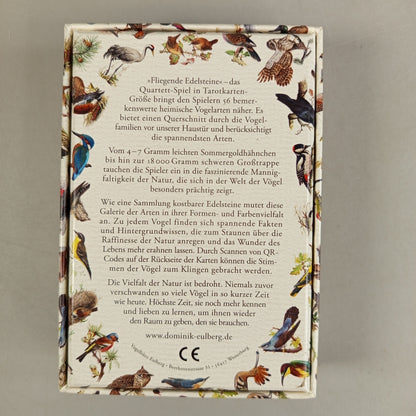 »Fliegende Edelsteine« – das
Quartett-Spiel in Tarotkarten-
Größe bringt den Spielern 56 bemer-
kenswerte heimische Vogelarten näher. Es
bietet einen Querschnitt durch die Vogel-
familien vor unserer Haustür und berücksichtigt
die spannendsten Arten.
Vom 4–7 Gramm leichten Sommergoldhähnchen
bis hin zur 18 000 Gramm schweren Großtrappe
tauchen die Spieler ein in die faszinierende Mannig-
faltigkeit der Natur, die sich in der Welt der Vögel
besonders prächtig zeigt.
Wie eine Sammlung kostbarer Edelsteine mutet diese
Galerie der Arten in ihrer Formen- und Farbenvielfalt
an. Zu jedem Vogel finden sich spannende Fakten
und Hintergrundwissen, die zum Staunen über die
Raffinesse der Natur anregen und das Wunder des
Lebens mehr erahnen lassen. Durch Scannen von QR-
Codes auf der Rückseite der Karten können die Stim-
men der Vögel zum Klingen gebracht werden.
Die Vielfalt der Natur ist bedroht. Niemals zuvor
verschwanden so viele Vögel in so kurzer Zeit
wie heute. Höchste Zeit, sie noch mehr kennen
und lieben zu lernen, um ihnen wieder
den Raum zu geben, den sie brauchen.
www.dominik-eulberg.de
CE